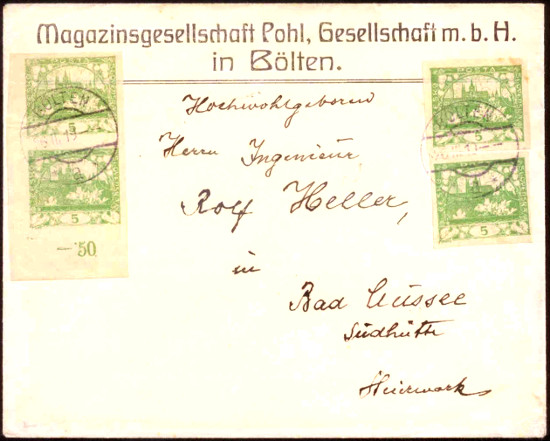 Magazinsgesellschaft Pohl, Gesellschaft m. b. H.
in Bölten.
BÖLTEN
5
5
—'50
BÖLTEN
5
5
Hochwohlgeboren
Herrn Ingenieur
Rolf Heller,
in
Bad Aussee
Südhütte
Steiermark